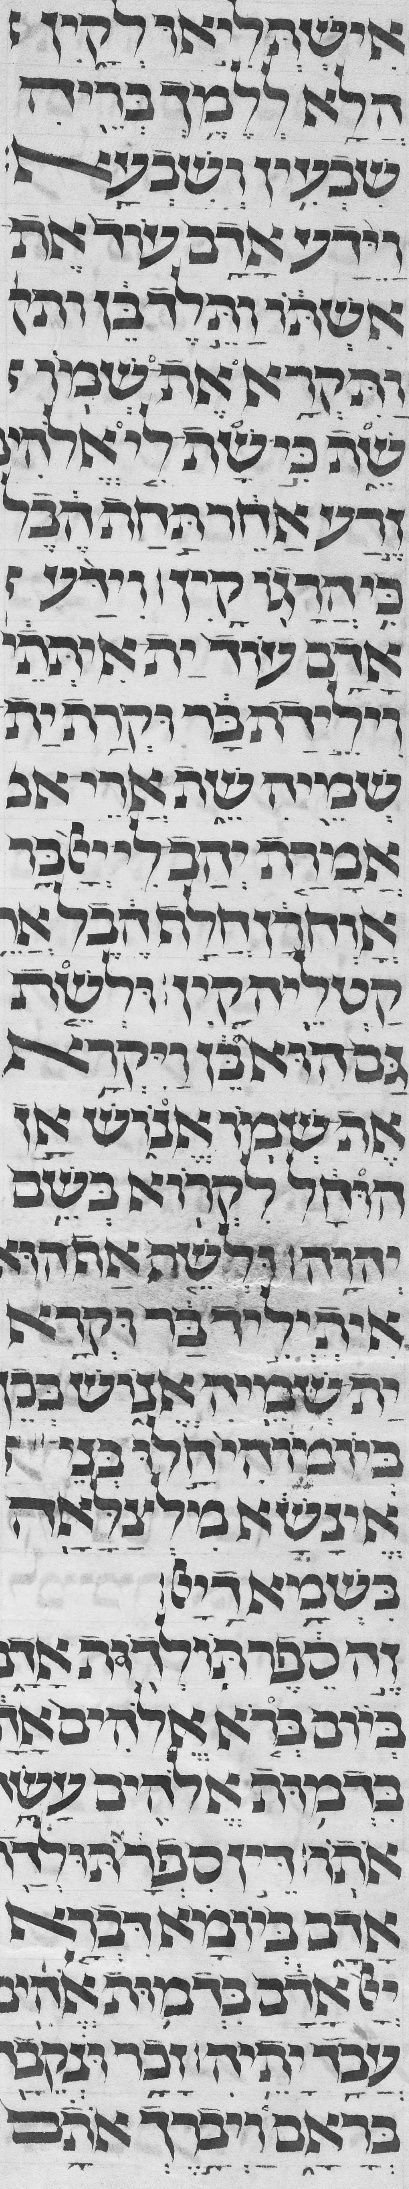 אישתליאו לקין
הלא ללמך בריה
שבעין ושבעא
וידע אדם עוד את
אשתו ותלד בן ותק
ותקרא את שמו
שת כי שת לי אלהים
זרע אחר תחת הבל
כי הרגו קין וידע
אדם עוד ית איתתי
וילידת בר וקרת ית
שמיה שת ארי אמ
אמרת יהב לי ייט בר
אוחרן חלת הבל אר
קטליה קין ולשת
גם הוא בן ויקרא
את שמו אנוש אז
הוחל לקרוא בשם
יהוה ולשת אתהוא
איתיליד בר וקרא
ית שמיה אנוש בכן
ביומוהי חלו בני
אינשא מלצלאה
בשמא דייט
זה ספר תולדות אדם
ביום ברא אלהים אד
בדמות אלהים עשה
אתו דין ספר תולדת
אדם ביומא דברא
ייט אדם בדמות אלהים
עבד יתיה זכר ונקבה
בראם ויברך אתם